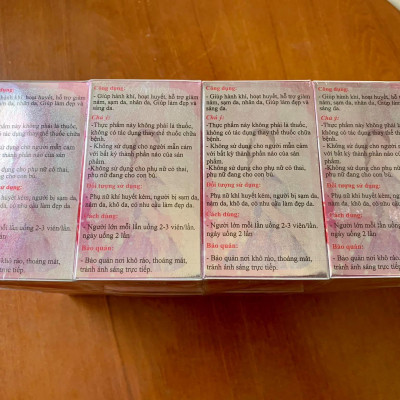 dụng:
hành khí, hoạt huyết, hỗ trợ giảm
sạm da, nhăn da, Giúp làm đẹp và
da.
phẩm này không phải là thuốc,
có tác dụng thay thế thuốc chữa
sử dụng cho người mẫn cảm
kỳ thành phần nào của sản
sử dụng cho phụ nữ có thai,
đang cho con bú.
tượng sử dụng:
nữ khí huyết kém, người bị sạm da,
khô da, có nhu cầu làm đẹp da.
dùng:
lớn mỗi lần uống 2-3 viên/lần,
uống 2 lần
quản:
quản nơi khô ráo, thoáng mát,
ánh sáng trực tiếp.
Công dụng:
- Giúp hành khí, hoạt huyết, hỗ trợ giảm
nám, sạm da, nhăn da, Giúp làm đẹp và
sáng da.
Chú ý:
-Thực phẩm này không phải là thuốc,
không có tác dụng thay thế thuốc chữa
bệnh.
-Không sử dụng cho người mẫn cảm
với bất kỳ thành phần nào của sản
phẩm.
-Không sử dụng cho phụ nữ có thai,
phụ nữ đang cho con bú.
Đối tượng sử dụng:
- Phụ nữ khí huyết kém, người bị sạm da,
nám da, khô da, có nhu cầu làm đẹp da.
Cách dùng:
- Người lớn mỗi lần uống 2-3 viên/lần,
ngày uống 2 lần
Bảo quản:
- Bảo quản nơi khô ráo, thoáng mát,
tránh ánh sáng trực tiếp.
Công dụng:
- Giúp hành khí, hoạt huyết, hỗ trợ giảm
nám, sạm da, nhăn da, Giúp làm đẹp và
sáng da.
Chú ý:
-Thực phẩm này không phải là thuốc,
không có tác dụng thay thế thuốc chữa
bệnh.
-Không sử dụng cho người mẫn cảm
với bất kỳ thành phần nào của sản
phẩm.
-Không sử dụng cho phụ nữ có thai,
phụ nữ đang cho con bú.
Đối tượng sử dụng:
- Phụ nữ khí huyết kém, người bị sạm da,
nám da, khô da, có nhu cầu làm đẹp da.
Cách dùng:
- Người lớn mỗi lần uống 2-3 viên/lần,
ngày uống 2 lần
Bảo quản:
- Bảo quản nơi khô ráo, thoáng mát,
tránh ánh sáng trực tiếp.
Công dụng:
- Giúp hành khí, hoạt huyết,
nám, sạm da, nhăn da,
sáng da.
Chú ý:
-Thực phẩm này không
không có tác dụng
bệnh.
-Không sử dụng cho
với bất kỳ thành phần
phẩm.
-Không sử dụng cho
phụ nữ đang cho con
Đối tượng sử dụng:
- Phụ nữ khí huyết kém,
nám da, khô da, có nhu
Cách dùng:
- Người lớn mỗi lần
ngày uống 2 lần
Bảo quản:
- Bảo quản nơi khô ráo,
tránh ánh sáng trực tiếp.